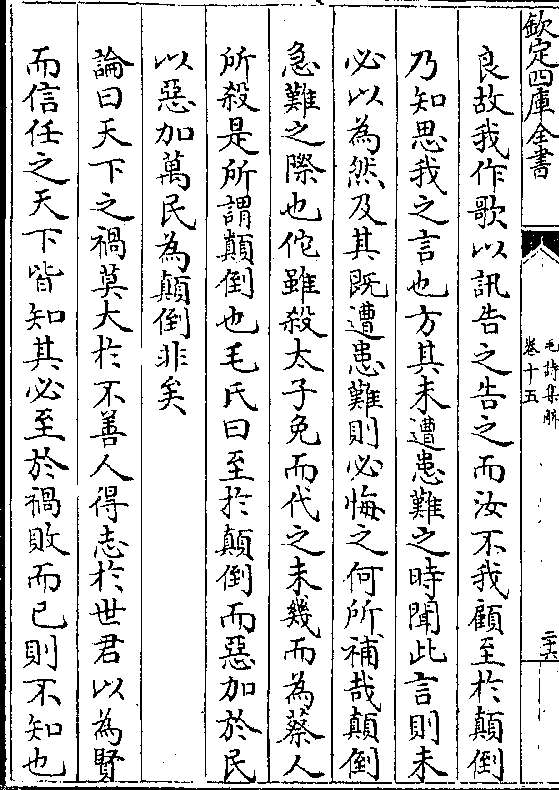 欽定四庫全書
毛詩集解
卷十五
二十六
良故我作歌以訊告之告之而汝不我顧至於顛倒
乃知思我之言也方其未遭患難之時聞此言則未
必以為然及其既遭患難則必悔之何所補哉顛倒
急難之際也佗雖殺太子免而代之未幾而為蔡人
所殺是所謂顛倒也毛氏曰至於顛倒而惡加於民
以惡加萬民為顛倒非矣
論曰天下之禍莫大於不善人得志於世君以為賢
而信任之天下皆知其必至於禍敗而已則不知也